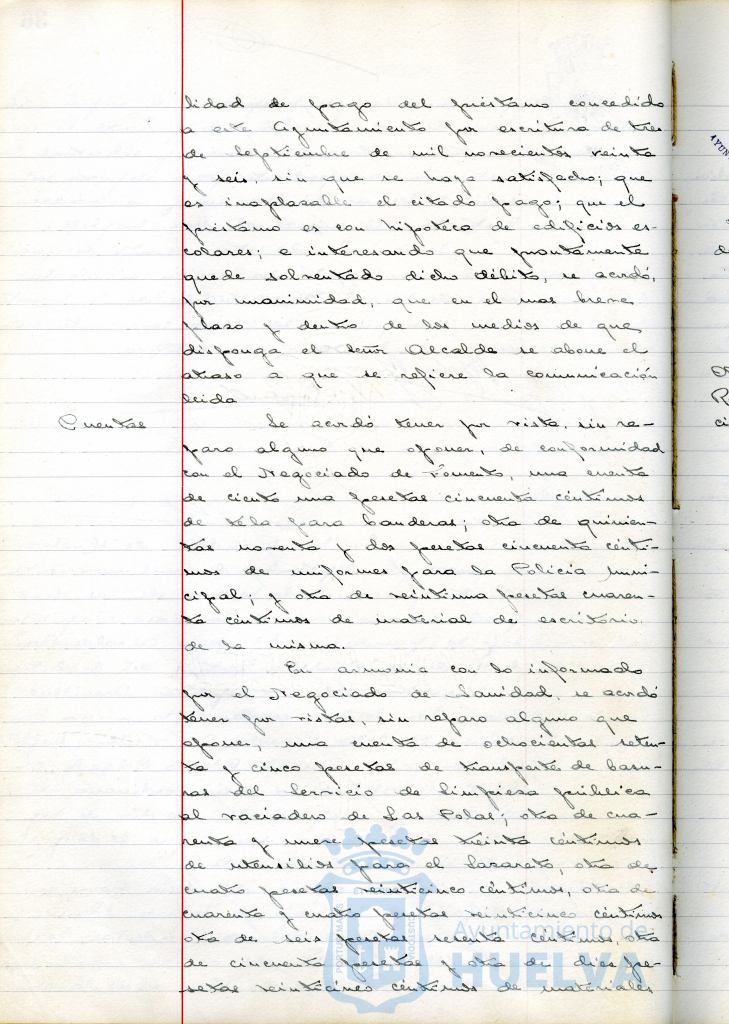 lidad de pago del préstamo concedido
a este Ayuntamiento por escritura de tres
de Septiembre de mil novecientos veinte
y seis, sin que se haya satisfecho; que
es inaplazable el citado pago; que el
préstamo es con hipoteca de edificios es-
colares; e interesando que prontamente
quede solventado dicho débito, se acordó,
por unanimidad, que en el mas breve
plazo y dentro de los medios de que
disponga el Señor Alcalde se abone el
atraso a que se refiere la comunicación
leida
Cuentas
Se acordó tener por vista, sin re-
paro alguno que oponer, de conformidad
con el Negociado de Fomento, una cuenta
de ciento una pesetas cincuenta céntimos
de tela para banderas; otra de quinien-
tas noventa y dos pesetas cincuenta cénti-
mos de uniformes para la Policia muni-
cipal; y otra de veintiuna pesetas cuaren-
ta céntimos de material de escritorio
de la misma.
En armonia con lo informado
por el Negociado de Sanidad, se acordó
tener por vistas, sin reparo alguno que
oponer, una cuenta de ochocientas seten-
ta y cinco pesetas de transporte de basu-
ras del Servicio de limpieza pública
al vaciadero de Las Polas; otra de cua-
renta y nueve pesetas treinta céntimos
de utensilios para el Lazareto, otra de
cuatro pesetas veinticinco céntimos, otra de
cuarenta y cuatro pesetas veinticinco céntimos
otra de seis pesetas sesenta céntimos, otra
de cincuenta pesetas y otra de diez pe-
setas veinticinco céntimos de materiales
Ayuntamiento de
HUELVA